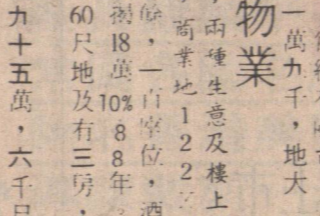 一萬九千，地大
物業
兩種生意及樓上
商業地122
餘，一百室位，酒
獨18萬10%88年
60尺地及有三房，
九十五萬，六千